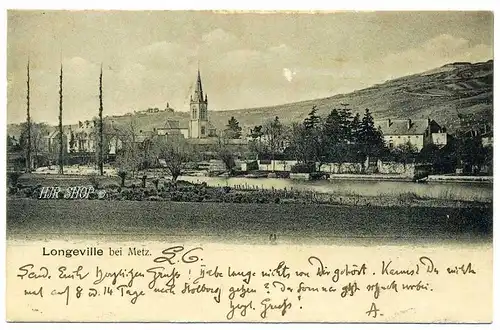 HJR SHOP ©
Longeville bei Metz. 2. 6
Send. Euch herzlichen Gruss! Habe lange nichts von Dir gehört. Kannst Du nicht
mal auf 8 u. 14 Tage nach Stolberg gehen? Der Sommer geht vorbei.
herzl. Gruss!
A.